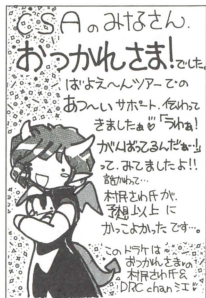 CSAのみなさん、
おっかれさま!でした。
はじょえ〜んツアーでの
あつ〜いサポート、伝わって
きましたぁ♡「うわぁ!
がんばってるんだぁ・!」
って、みてましたよ!!
話かわって…
村民さわ氏が、
予想以上に
かっこよかったです…。
このドラケは
おっかんさまの
村民さわ氏&
DRC chan シエ♡